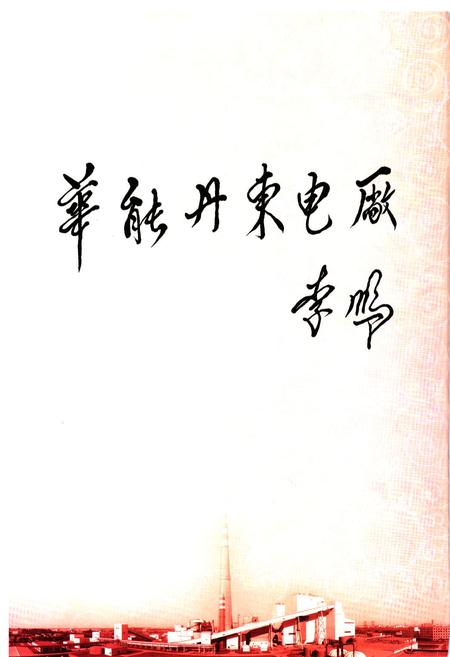 華能丹東电廠
李鹏